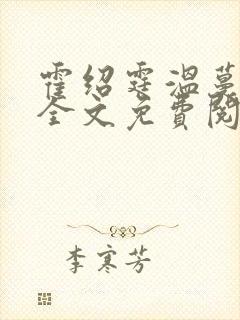 霍绍霆温蔓
全文免费阅
李寒芳